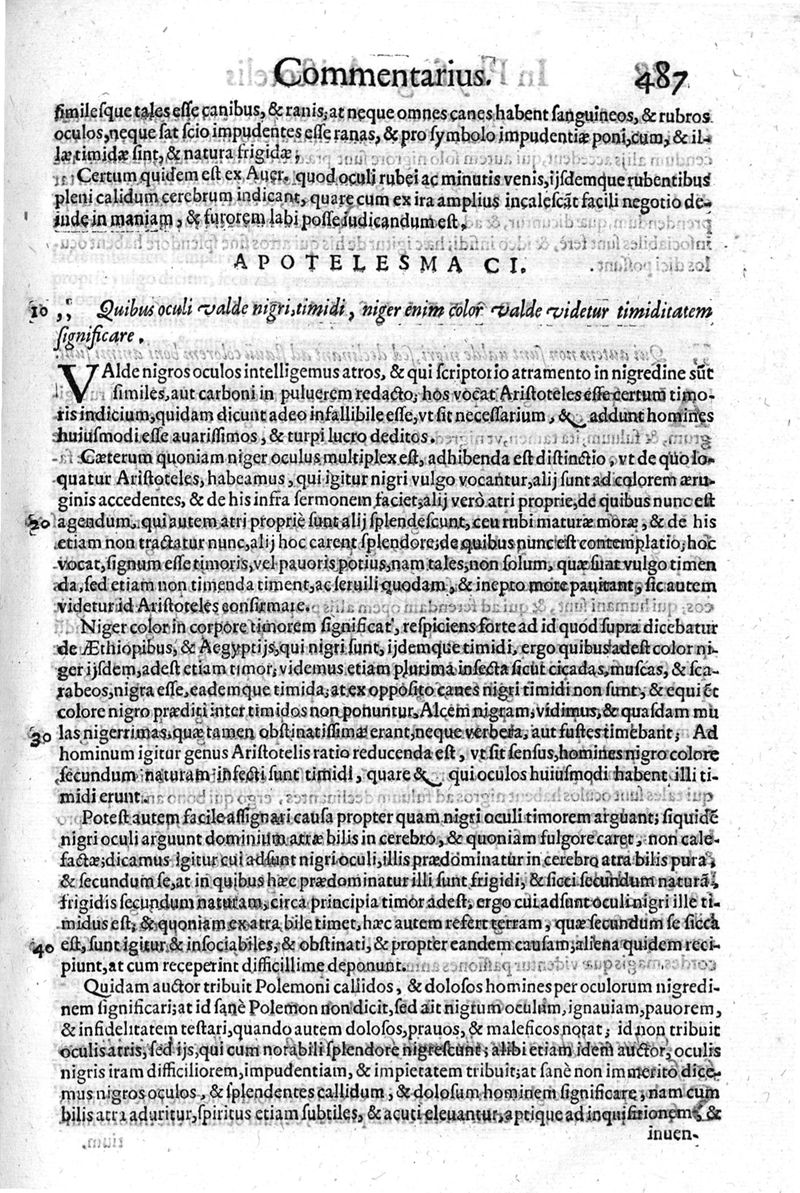 Commentarius. 487
similesque tales esse canibus, & ranis; at neque omnes canes habent sanguineos, & rubros
oculos, neque sat scio impudentes esse ranas, & pro symbolo impudentiæ poni, cum, & il-
læ timidæ sint, & natura frigidæ;
Certum quidem est ex Auer. quod oculi rubei ac minutis venis, ijsdemque rubentibus
pleni calidum cerebrum indicant, quare cum ex ira amplius incalescāt facili negotio de-
inde in maniam, & furorem labi posse iudicandum est.
APOTELESMA CI.
10 ,, Quibus oculi valde nigri, timidi, niger enim color valde videtur timiditatem
significare.
VAlde nigros oculos intelligemus atros, & qui scriptorio atramento in nigredine sūt
similes, aut carboni in puluerem redacto; hos vocat Aristoteles esse certum timo-
ris indicium, quidam dicunt adeo infallibile esse, vt sit necessarium, & addunt homines
huiusmodi esse auarissimos, & turpi lucro deditos.
Cæterum quoniam niger oculus multiplex est, adhibenda est distinctio, vt de quo lo-
quatur Aristoteles, habeamus, qui igitur nigri vulgo vocantur, alij sunt ad colorem æru-
ginis accedentes, & de his infra sermonem faciet; alij verò atri proprie, de quibus nunc est
20 agendum, qui autem atri propriè sunt alij splendescunt, ceu rubi maturæ moræ, & de his
etiam non tractatur nunc, alij hoc carent splendore; de quibus nunc est contemplatio; hoc
vocat, signum esse timoris, vel pauoris potius, nam tales, non solum, quæ sunt vulgo timen
da, sed etiam non timenda timent, ac seruili quodam, & inepto more pauitant, sic autem
videtur id Aristoteles confirmare.
Niger color in corpore timorem significat, respiciens forte ad id quod supra dicebatur
de Æthiopibus, & Aegyptijs, qui nigri sunt, ijdemque timidi, ergo quibus adest color ni-
ger ijsdem, adest etiam timor; videmus etiam plurima insecta sicut cicadas, muscas, & sca-
rabeos, nigra esse, eademque timida; at ex opposito canes nigri timidi non sunt, & equi ēt
colore nigro præditi inter timidos non ponuntur. Alcem nigram, vidimus, & quasdam mu
30 las nigerrimas, quæ tamen obstinatissimæ erant, neque verbera, aut fustes timebant; Ad
hominum igitur genus Aristotelis ratio reducenda est, vt sit sensus, homines nigro colore
secundum naturam infecti sunt timidi, quare & qui oculos huiusmodi habent illi ti-
midi erunt.
Potest autem facile assignari causa propter quam nigri oculi timorem arguant; siquidē
nigri oculi arguunt dominium atræ bilis in cerebro, & quoniam fulgore caret, non cale-
factæ; dicamus igitur cui adsunt nigri oculi, illis prædominatur in cerebro atra bilis pura,
& secundum se, at in quibus hæc prædominatur illi sunt frigidi, & sicci secundum naturā,
frigidis secundum naturam, circa principia timor adest, ergo cui adsunt oculi nigri ille ti-
midus est, & quoniam ex atra bile timet, hæc autem refert terram, quæ secundum se sicca
40 est, sunt igitur & insociabiles, & obstinati, & propter eandem causam; aliena quidem reci-
piunt, at cum receperint difficillime deponunt.
Quidam auctor tribuit Polemoni callidos, & dolosos homines per oculorum nigredi-
nem significari; at id sanè Polemon non dicit, sed ait nigrum oculum, ignauiam, pauorem,
& infidelitatem testari, quando autem dolosos, prauos, & maleficos notat; id non tribuit
oculis atris, sed ijs, qui cum notabili splendore nigrescunt; alibi etiam idem auctor, oculis
nigris iram difficiliorem, impudentiam, & impietatem tribuit; at sanè non immerito dice-
mus nigros oculos, & splendentes callidum, & dolosum hominem significare, nam cum
bilis atra aduritur, spiritus etiam subtiles, & acuti eleuantur, aptique ad inquisitionem, &
inuen-